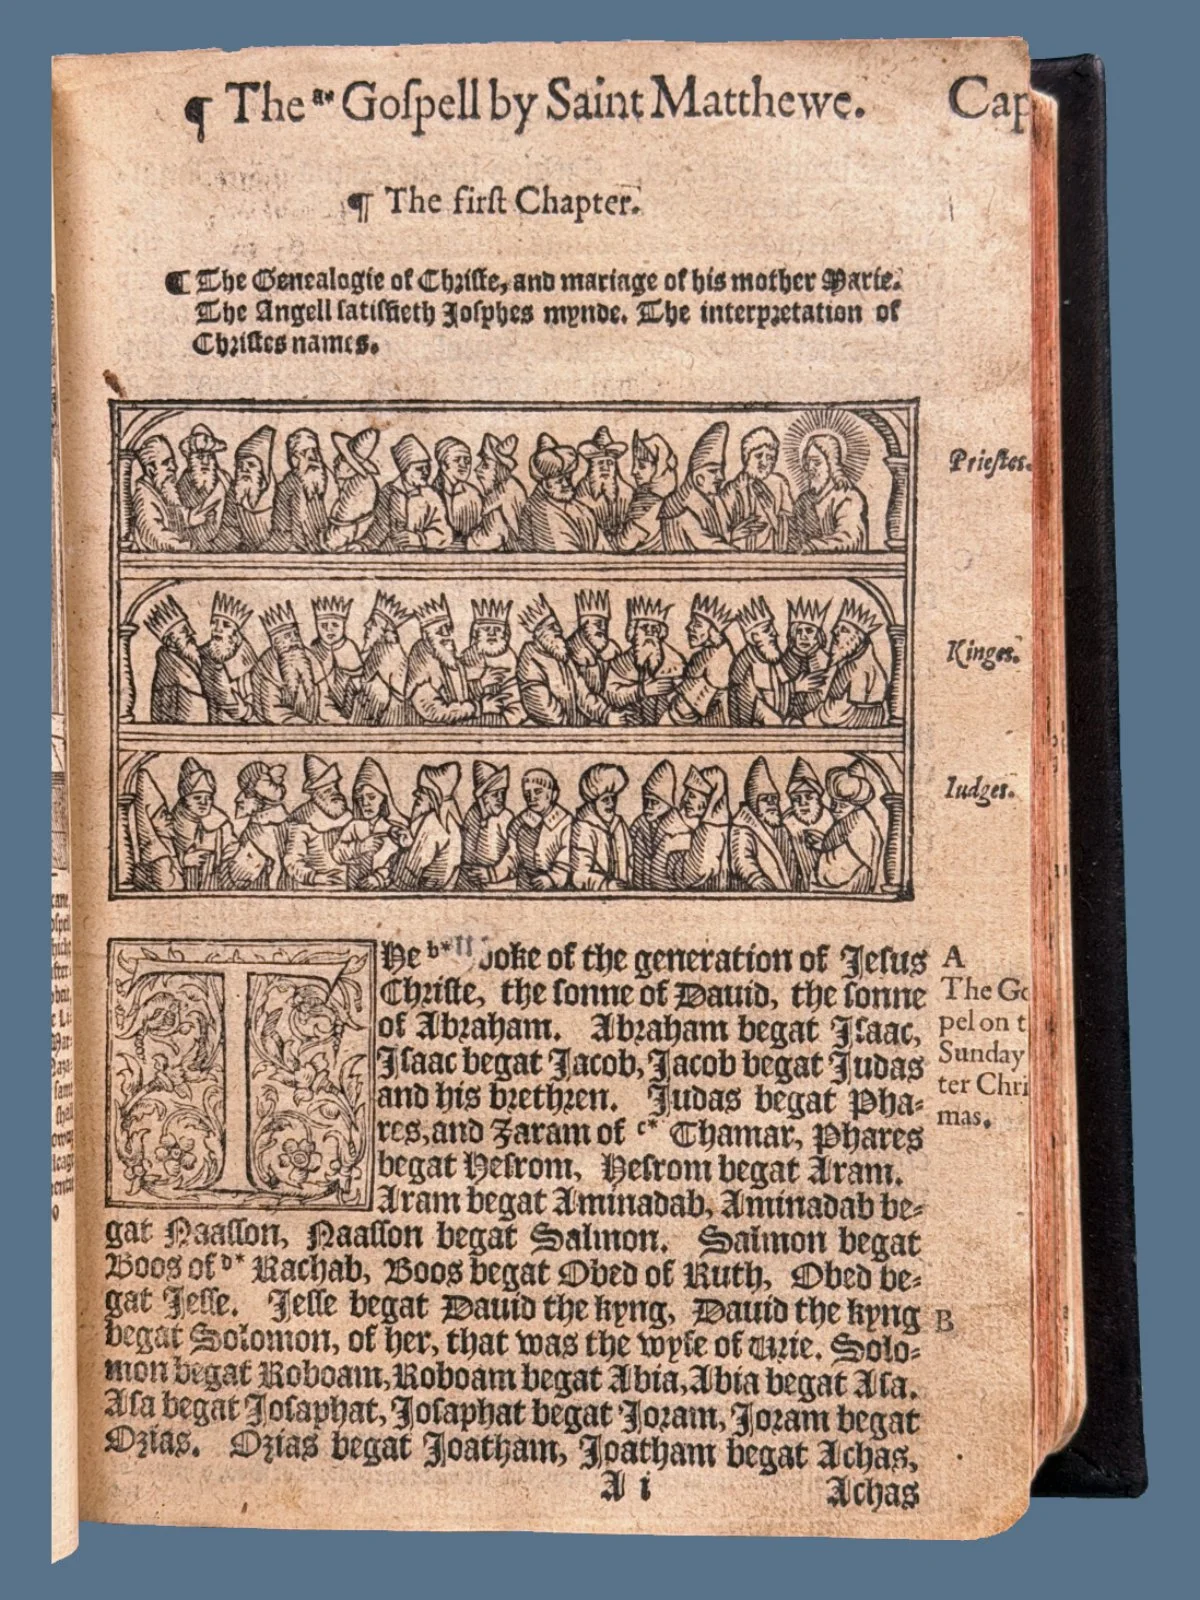 ¶ The ᵃ* Goſpell by Saint Matthewe. Cap
¶ The firſt Chapter.
¶ The Genealogie of Chriſte, and mariage of his mother Marie.
The Angell ſatiſfieth Joſphes mynde. The interpretation of
Chriſtes names.
Prieſtes.
Kinges.
Iudges.
THe ᵇ* Booke of the generation of Jeſus
Chriſte, the ſonne of Dauid, the ſonne
of Abraham. Abraham begat Iſaac,
Iſaac begat Jacob, Jacob begat Judas
and his brethren. Judas begat Pha⸗
res, and Zaram of ᶜ* Thamar, Phares
begat Heſrom, Heſrom begat Aram.
Aram begat Aminadab, Aminadab be⸗
gat Naaſſon, Naaſſon begat Salmon. Salmon begat
Boos of ᵈ* Rachab, Boos begat Obed of Ruth, Obed be⸗
gat Jeſſe. Jeſſe begat Dauid the kyng, Dauid the kyng
begat Solomon, of her, that was the wyfe of Urie. Solo⸗
mon begat Roboam, Roboam begat Abia, Abia begat Aſa.
Aſa begat Joſaphat, Joſaphat begat Joram, Joram begat
Ozias. Ozias begat Joatham, Joatham begat Achas,
A i Achas
A
The Go
pel on t
Sunday
ter Chri
mas.
B